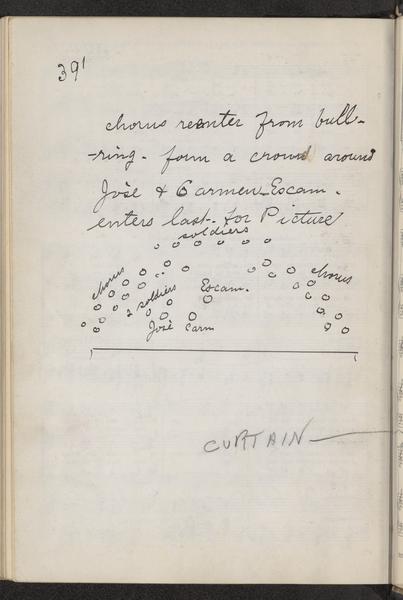 391
chorus reenter from bull-
-ring. form a crowd around
José & Carmen_Escam.
enters last. for Picture
soldiers
chorus
2 soldiers
Escam.
chorus
José Carm
CURTAIN